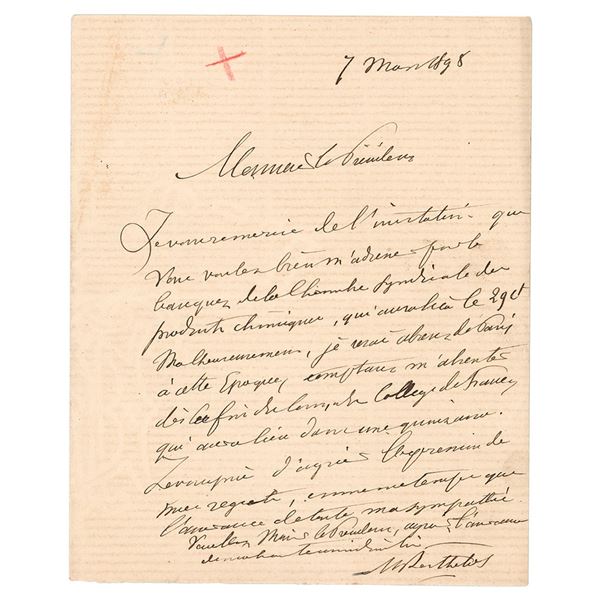 7 Mars 1898
Monsieur le Président
Je vous remercie de l'invitation que
Vous voulez bien m'adresser pour le
banquet de la Chambre Syndicale des
produits chimiques, qui aura lieu le 29 ct
Malheureusement, je serai absent de Paris
à cette Epoque, comptant m'absenter
dès la fin du cours du Collège de France,
qui aura lieu dans une quinzaine.
Je vous prie d'agréer l'expression de
mes regrets, en même temps que
l'assurance de toute ma sympathie.
Veuillez Monsieur le Président, agréer l'assurance
de ma haute considération
M Berthelot